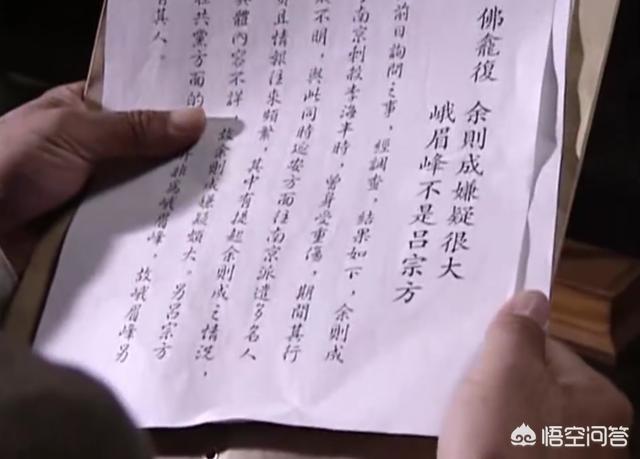 佛龕復 余則成嫌疑很大
峨眉峰不是呂宗方
前日詢問之事，經調查，結果如下，余則成
南京刺殺李海丰時，曾身受重傷，期間其行
不明，與此同時延安方面往南京派遣多名人
且情報往來頻繁，其中有提起余則成之情況，
體內容不詳，故余則成嫌疑頗大。另呂宗方
共黨方面的
非爲峨眉峰，故峨眉峰另
有其人。
悟空问答